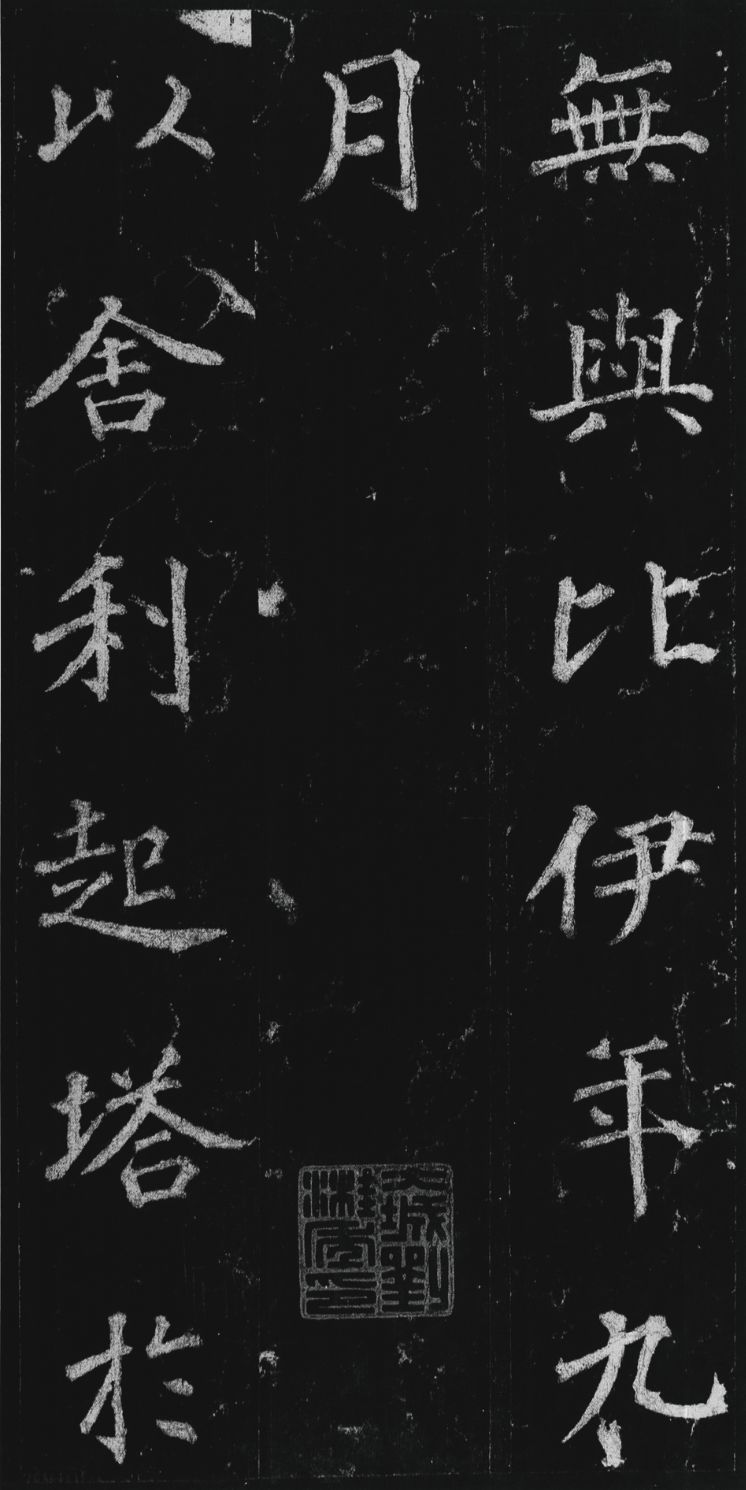 無與比伊年九
月
以舍利起塔於